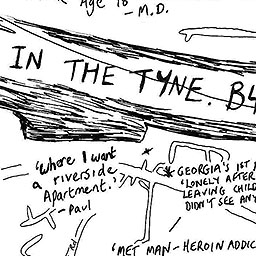 Age 18
- M.D.
IN THE TYNE. B4
'Where I want
a riverside
Apartment.'
- Paul
GEORGIA'S 1ST
'LONELY AFTER
LEAVING CHILD
DIDN'T SEE ANY
'MET MAN - HEROIN ADDIC